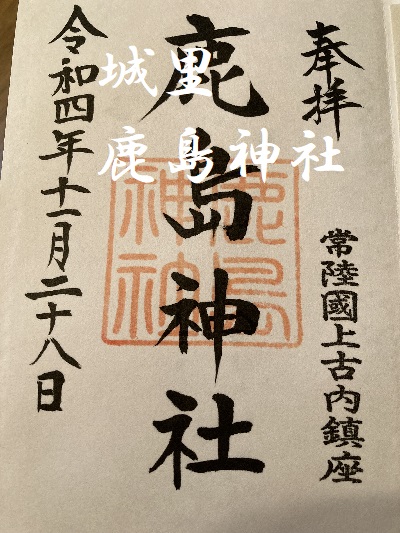 奉拝
常陸國上古内鎮座
鹿島神社
令和四年十一月二十八日
城里
鹿島神社
鹿島
神社